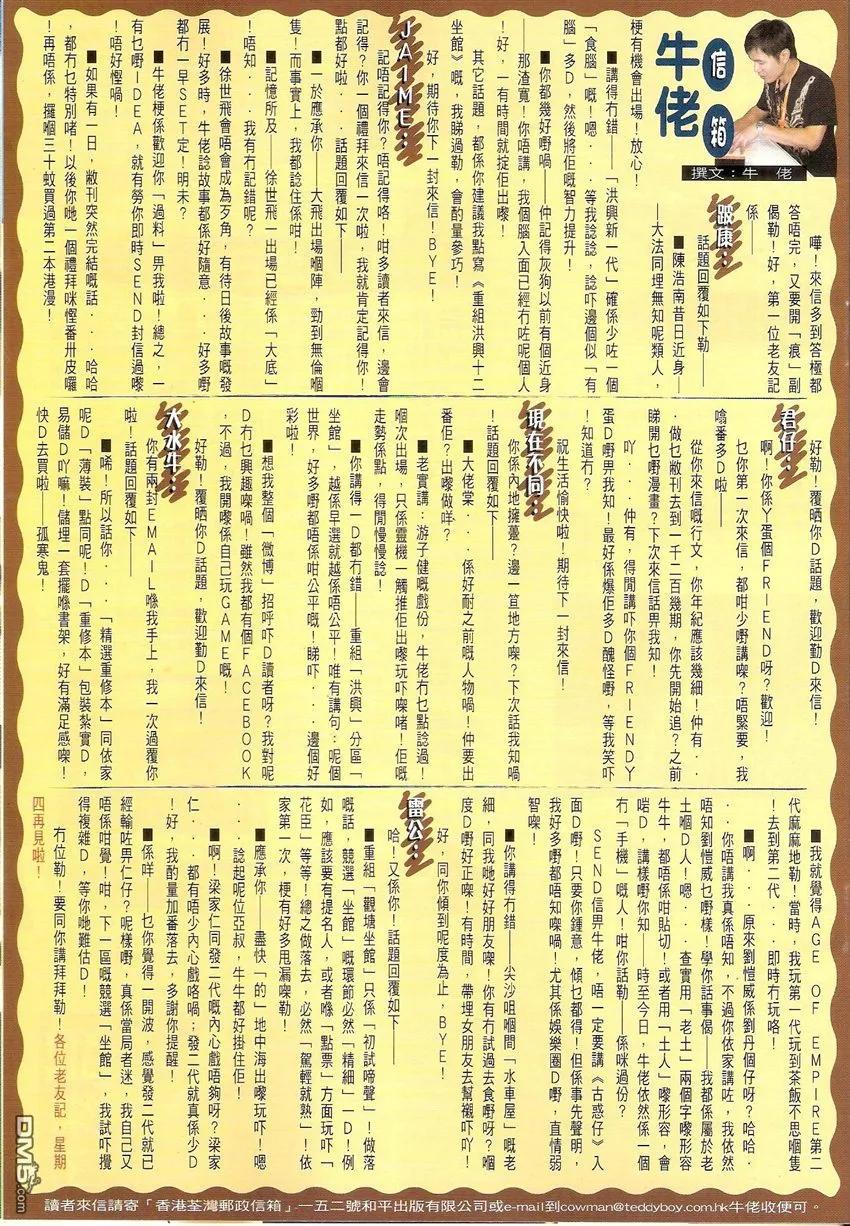 牛佬
信箱
撰文：牛　佬
嘩！來信多到答極都
答唔完，又要開「痕」副
偈勒！好，第一位老友記
係——
跛康：
話題回覆如下勒——
■陳浩南昔日近身——
——大法同埋無知呢類人，
梗有機會出場！放心！
■講得冇錯——「洪興新一代」確係少咗一個
「食腦」嘅！嗯．．．等我諗諗，諗吓邊個似「有
腦」多D，然後將佢嘅智力提升！
■你都幾好嘢喎——仲記得灰狗以前有個近身
——那渣寬！你唔講，我個腦入面已經冇咗呢個人
！好，一有時間就掟佢出嚟！
其它話題，都係你建議我點寫《重組洪興十二
坐館》嘅，我睇過勒，會酌量參巧！
好，期待你下一封來信！BYE！
JAIME：
記唔記得你？唔記得咯！咁多讀者來信，邊會
記得？你一個禮拜來信一次啦，我就肯定記得你！
點都好啦．．．話題回覆如下——
■一於應承你——大飛出場嗰陣，勁到無倫嗰
隻！而事實上，我都諗住係咁！
■記憶所及——徐世飛一出場已經係「大底」
！唔知．．．我有冇記錯呢？
■徐世飛會唔會成為歹角，有待日後故事嘅發
展！好多時，牛佬諗故事都係好隨意．．．好多嘢
都冇一早SET定！明未？
■牛佬梗係歡迎你「過料」畀我啦！總之，一
有乜嘢IDEA，就有勞你即時SEND封信過嚟
！唔好慳喎！
■如果有一日，敝刊突然完結嘅話．．．哈哈
，都冇乜特別啫！以後你哋一個禮拜咪慳番卅皮囉
！再唔係，攞嗰三十蚊買過第二本港漫！
好勒！覆晒你D話題，歡迎勤D來信！
君仔：
啊！你係丫蛋個FRIEND呀？歡迎！
乜你第一次來信，都咁少嘢講㗎？唔緊要，我
噏番多D啦——
從你來信嘅行文，你年紀應該幾細！仲有．．
．做乜敝刊去到一千二百幾期，你先開始追？之前
睇開乜嘢漫畫？下次來信話畀我知！
吖．．．仲有，得閒講吓你個FRIENDY
蛋D嘢畀我知！最好係爆佢多D醜怪嘢，等我笑吓
！知道冇？
祝生活愉快啦！期待下一封來信！
現在不同：
你係內地擁躉？邊一笪地方㗎？下次話我知喎
！話題回覆如下——
■大佬棠．．．係好耐之前嘅人物喎！仲要出
番佢？出嚟做咩？
■老實講：游子健嘅戲份，牛佬冇乜點諗過！
嗰次出場，只係靈機一觸推佢出嚟玩吓㗎啫！佢嘅
走勢係點，得閒慢慢諗！
■你講得一D都冇錯——重組「洪興」分區「
坐館」，越係早選就越係唔公平！唯有講句：呢個
世界，好多嘢都唔係咁公平嘅！睇吓．．．邊個好
彩啦！
■想我整個「微博」招呼吓D讀者呀？我對呢
D冇乜興趣㗎喎！雖然我都有個FACEBOOK
，不過，我開嚟係自己玩GAME嘅！
好勒！覆晒你D話題，歡迎勤D來信！
大水牛：
你有兩封EMAIL喺我手上，我一次過覆你
啦！話題回覆如下——
■唏！所以話你．．．「精選重修本」同依家
呢D「薄裝」點同呢！D「重修本」包裝紮實D，
易儲D吖嘛！儲埋一套擺喺書架，好有滿足感㗎！
快D去買啦！——孤寒鬼！
■我就覺得AGE OF EMPIRE第二
代麻麻地勒！當時，我玩第一代玩到茶飯不思嗰隻
！去到第二代．．．即時冇玩咯！
■啊．．．原來劉愷威係劉丹個仔呀？哈哈．
．．你唔講我真係唔知，不過你依家講咗，我依然
唔知劉愷威乜嘢樣！學你話事偈——我都係屬於老
土嗰D人！嗯．．．查實用「老土」兩個字嚟形容
牛牛，都唔係咁貼切！或者用「土人」嚟形容，會
啱D，講樣嘢你知——時至今日，牛佬依然係一個
冇「手機」嘅人！咁你話勒——係咪過份？
SEND信畀牛佬，唔一定要講《古惑仔》入
面D嘢！只要你鍾意，傾乜都得！但係事先聲明，
我好多嘢都唔知㗎喎！尤其係娛樂圈D嘢，直情弱
智㗎！
■你講得冇錯——尖沙咀嗰間「水車屋」嘅老
細，同我哋好好朋友㗎！你有冇試過去食嘢呀？嗰
度D嘢好正㗎！有時間，帶埋女朋友去幫襯吓吖！
好，同你傾到呢度為止，BYE！
雷公：
哈！又係你！話題回覆如下——
■重組「觀塘坐館」只係「初試啼聲」！做落
嘅話，競選「坐館」嘅環節必然「精細」一D！例
如，應該要有提名人，或者喺「點票」方面玩吓「
花臣」等等！總之做落去，必然「駕輕就熟」！依
家第一次，梗有好多甩漏㗎勒！
■應承你——盡快「的」地中海出嚟玩吓！嗯
．．．諗起呢位亞叔，牛牛都好掛住佢！
■啊！梁家仁同發二代嘅內心戲唔夠呀？梁家
仁．．．都有唔少內心戲咯喎；發二代就真係少D
！好，我酌量加番落去，多謝你提醒！
■係咩——乜你覺得一開波，感覺發二代就已
經輸咗畀仁仔？呢樣嘢，真係當局者迷，我自己又
唔係咁覺！咁，下一區嘅競選「坐館」，我試吓攪
得複雜D，等你哋難估D！
冇位勒！要同你講拜拜勒！各位老友記，星期
四再見啦！
讀者來信請寄「香港荃灣郵政信箱」一五二號和平出版有限公司或e-mail到cowman@teddyboy.com.hk牛佬收便可。
DM5.com